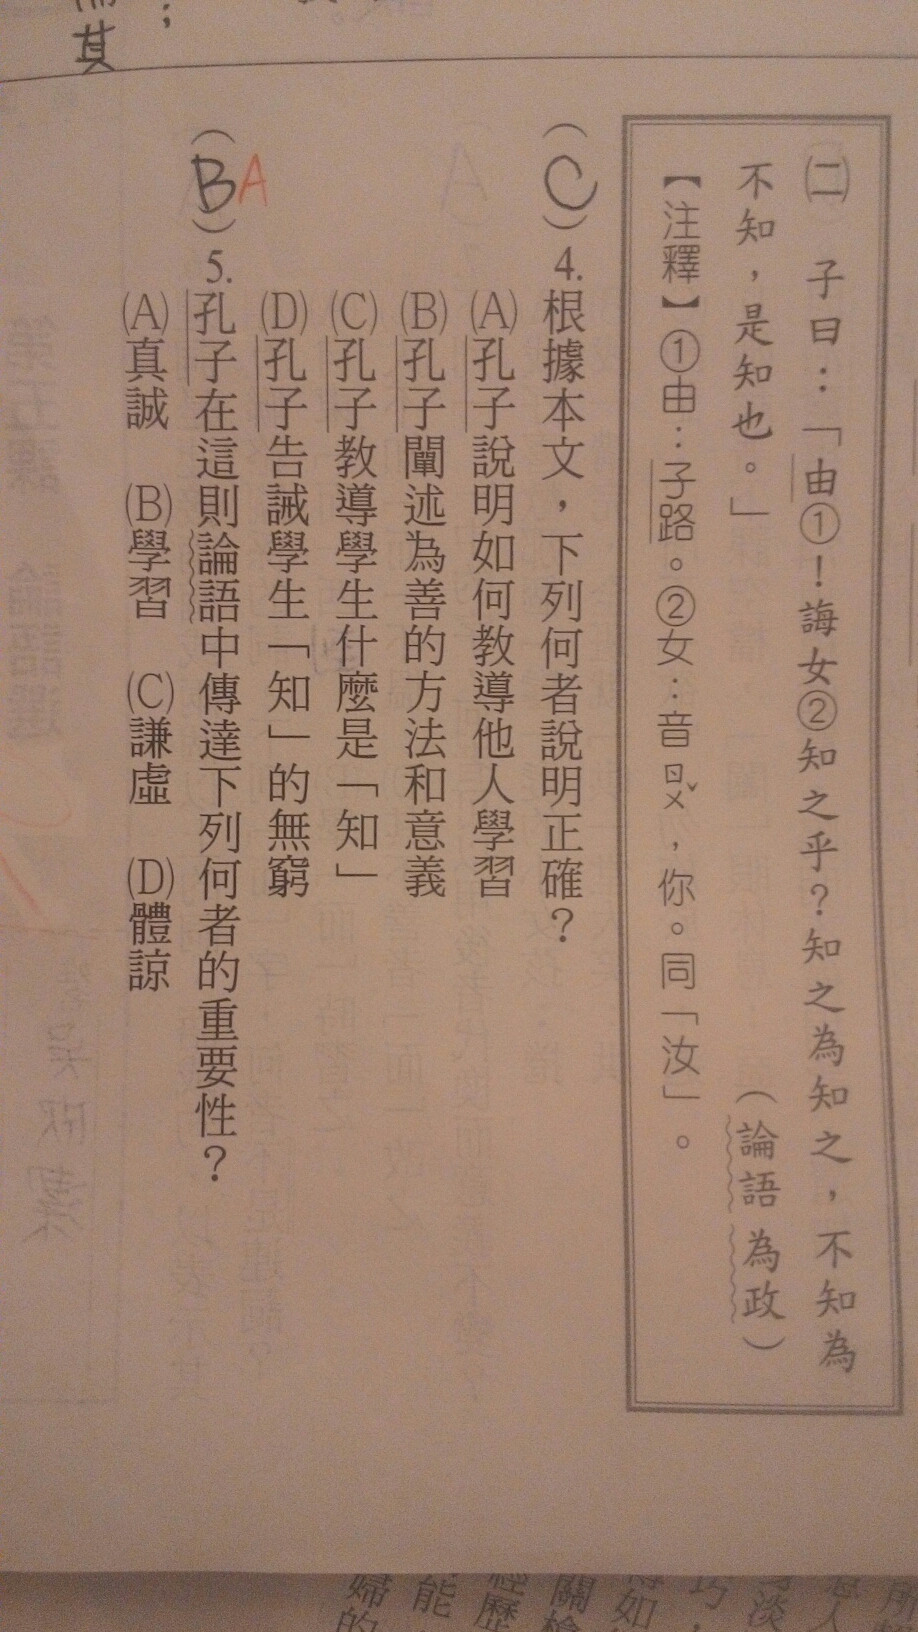 其
㈡ 子曰：「由①！誨女②知之乎？知之為知之，不知為
不知，是知也。」（論語 為政）
【注釋】①由：子路。②女：音ㄖㄨˇ，你。同「汝」。
（C）4.根據本文，下列何者說明正確？
(A)孔子說明如何教導他人學習
(B)孔子闡述為善的方法和意義
(C)孔子教導學生什麼是「知」
(D)孔子告誡學生「知」的無窮
（B）A 5.孔子在這則論語中傳達下列何者的重要性？
(A)真誠 (B)學習 (C)謙虛 (D)體諒